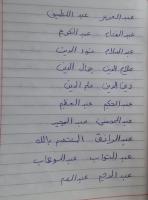 عبد العزيز عبد اللطيف
عبد الفتاح عبد الكريم
عبد السلام عبد الدين
علاء الدين جمال الدين
علم الدين
عبد الحكيم عبد العظيم
عبد المحسن عبد المجيد
عبد الرازق المعتصم بالله
عبد التواب عبد الوهاب
عبد الرحيم